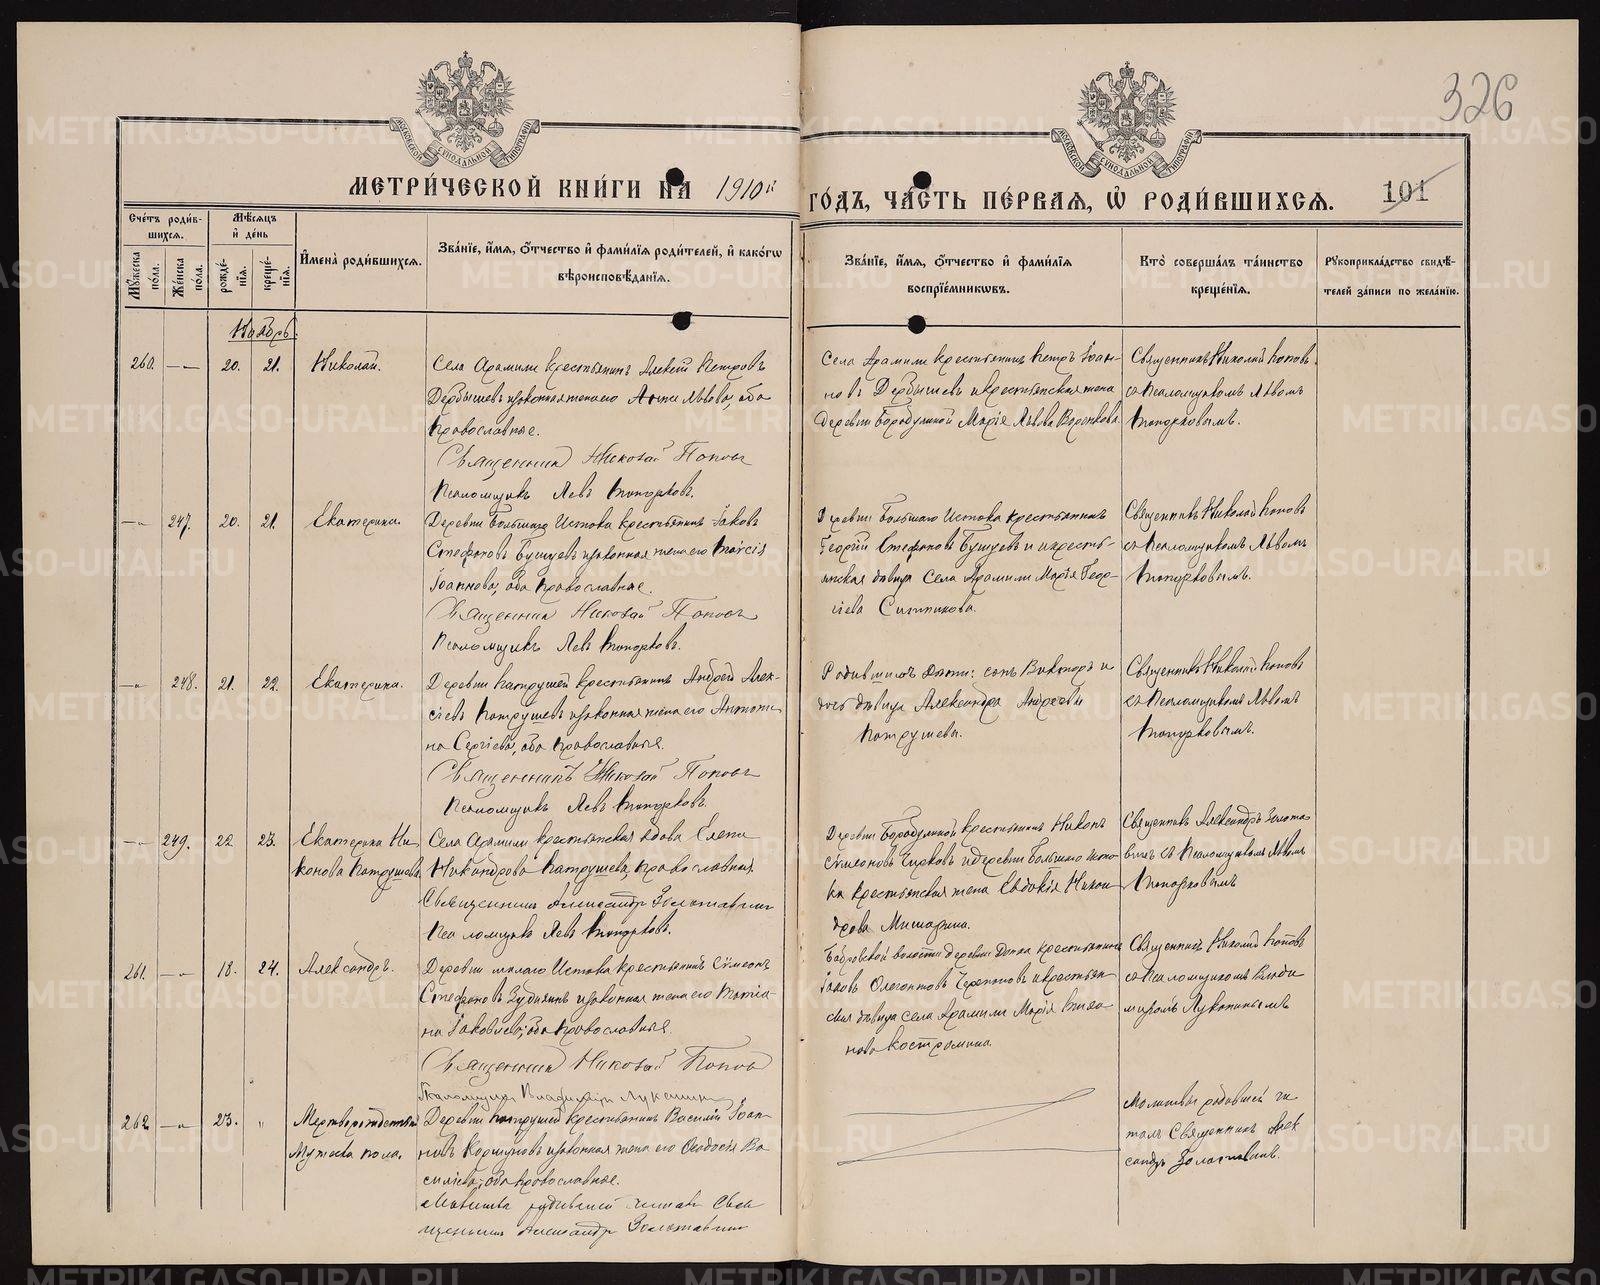 326
МЕТРИ́ЧЕСКОЙ КНИ́ГИ НА 1910й ГО́ДЪ, ЧА́СТЬ ПЕ́РВАЯ, Ѡ РОДИ́ВШИХСЯ.
101
Сче́тъ роди́вшихся.
Му́жеска по́ла.
Же́нска по́ла.
Мѣ́сяцъ и де́нь
рожде́нія.
креще́нія.
И́мена роди́вшихся.
Зва́ніе, и́мя, о́тчество и фами́лія роди́телей, и како́гѡ
вѣроисповѣ́данія.
Зва́ніе, и́мя, о́тчество и фами́лія
воспріе́мниковъ.
Кто̀ соверша́лъ та́инство
креще́нія.
Рукоприкла́дство свидѣ́-
телей за́писи по жела́нію.
Ноябрь.
260. 20. 21. Николай.
Села Арамили крестьянинъ Алексѣй Петровъ
Дербышевъ и законная жена его Анна Львова, оба
православные.
Священникъ Николай Попов
Псаломщикъ Левъ Топорковъ.
Села Арамили крестьянинъ Петръ Іоан-
новъ Дербышевъ и крестьянская жена
деревни Бородулиной Марія Львова Воронкова.
Священникъ Николай Поповъ
съ Псаломщикомъ Львомъ
Топорковымъ.
247. 20. 21. Екатерина.
Деревни Большаго Истока крестьянинъ Іаковъ
Стефановъ Бушуевъ и законная жена его Таисія
Іоаннова, оба православные.
Священник Николай Попов
Псаломщикъ Левъ Топорковъ.
Деревни Большаго Истока крестьянинъ
Георгій Стефановъ Бушуевъ и кресть-
янская дѣвица Села Арамили Марія Геор-
гіева Ситникова.
Священникъ Николай Поповъ
съ Псаломщикомъ Львомъ
Топорковымъ.
248. 21. 22. Екатерина.
Деревни Патрушей крестьянинъ Андрей Алек-
сіевъ Патрушевъ и законная жена его Антони-
на Сергіева, оба православные.
Священникъ Николай Попов
Псаломщикъ Левъ Топорковъ.
Родившихъ дѣти: сынъ Викторъ и
дочь дѣвица Александра Андреевы
Патрушевы.
Священникъ Николай Поповъ
съ Псаломщикомъ Львомъ
Топорковымъ.
249. 22. 23. Екатерина Ни-
конова Патрушева
Села Арамили крестьянская вдова Елена
Никандрова Патрушева, православная.
Священник Александр Золотавин
Псаломщикъ Левъ Топорковъ.
Деревни Бородулиной крестьянинъ Никонъ
Сѵмеоновъ Чирковъ и деревни Большаго Исто-
ка крестьянская жена Евдокія Никан-
дрова Мишарина.
Священникъ Александръ Золота-
винъ съ Псаломщикомъ Львомъ
Топорковымъ
261. 18. 24. Александръ.
Деревни малаго Истока крестьянинъ Сѵмеонъ
Стефановъ и законная жена его Татіа-
на Іаковлева, оба православные.
Священник Николай Попов
Псаломщик Владимір Лукинин
Бобровской волости деревни крестьянинъ
Іаковъ Черепановъ и крестьян-
ская дѣвица села Арамили Марія
Костромина.
Священникъ Николай Поповъ
съ Псаломщикомъ Влади-
миромъ Лукининымъ
262. 23. " Мертворожденный
Мужеска пола.
Деревни Патрушей крестьянинъ Василій Іоан-
новъ Коршуновъ и законная жена его Ѳеодосія Ва-
силіева, оба православные.
Молитва родившей читал Свя-
щенник Александр Золотавин
Молитвы родившей чи-
талъ Священникъ Алек-
сандръ Золотавинъ.